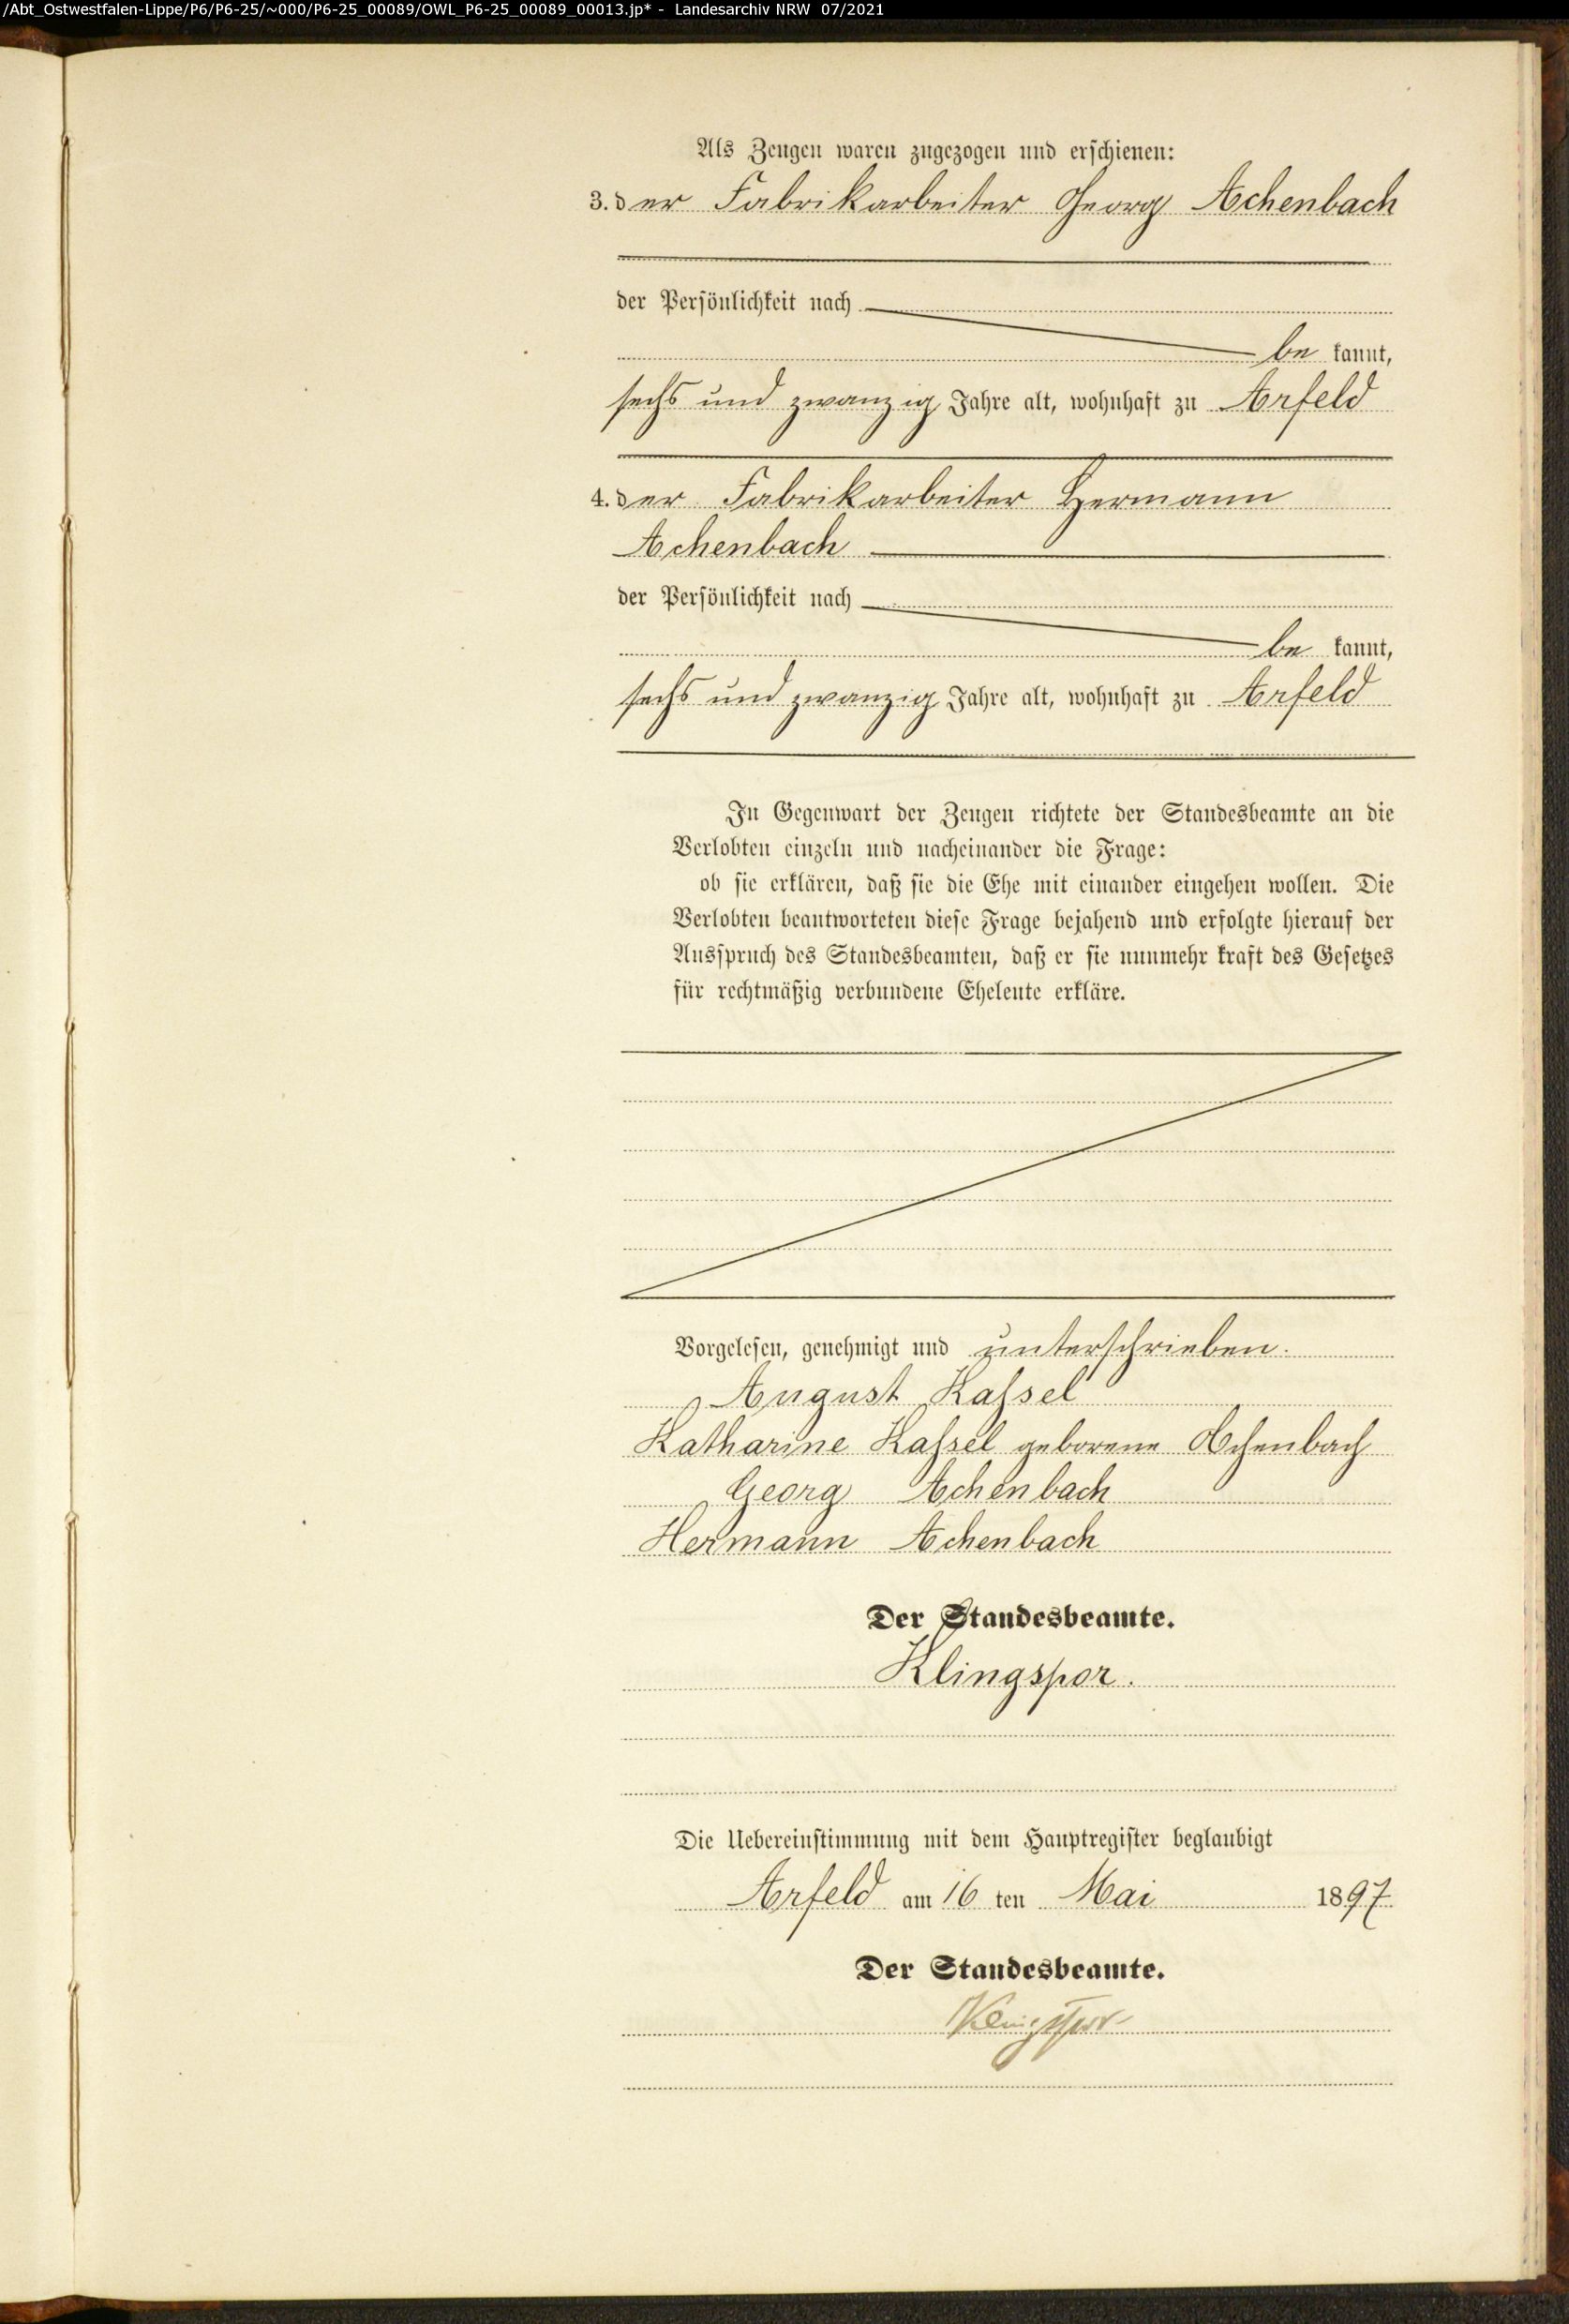 /Abt_Ostwestfalen-Lippe/P6/P6-25/~000/P6-25_00089/OWL_P6-25_00089_00013.jp* - Landesarchiv NRW 07/2021
Als Zeugen waren zugezogen und erschienen:
3. der Fabrikarbeiter Georg Achenbach
der Persönlichkeit nach
be kannt,
sechs und zwanzig Jahre alt, wohnhaft zu Arfeld
4. der Fabrikarbeiter Hermann
Achenbach
der Persönlichkeit nach
be kannt,
sechs und zwanzig Jahre alt, wohnhaft zu Arfeld
In Gegenwart der Zeugen richtete der Standesbeamte an die
Verlobten einzeln und nacheinander die Frage:
ob sie erklären, daß sie die Ehe mit einander eingehen wollen. Die
Verlobten beantworteten diese Frage bejahend und erfolgte hierauf der
Ausspruch des Standesbeamten, daß er sie nunmehr kraft des Gesetzes
für rechtmäßig verbundene Eheleute erkläre.
Vorgelesen, genehmigt und unterschrieben.
August Kassel
Katharine Kassel geborene Achenbach
Georg Achenbach
Hermann Achenbach
Der Standesbeamte.
Klingspor.
Die Uebereinstimmung mit dem Hauptregister beglaubigt
Arfeld am 16 ten Mai 1897
Der Standesbeamte.
Klingspor